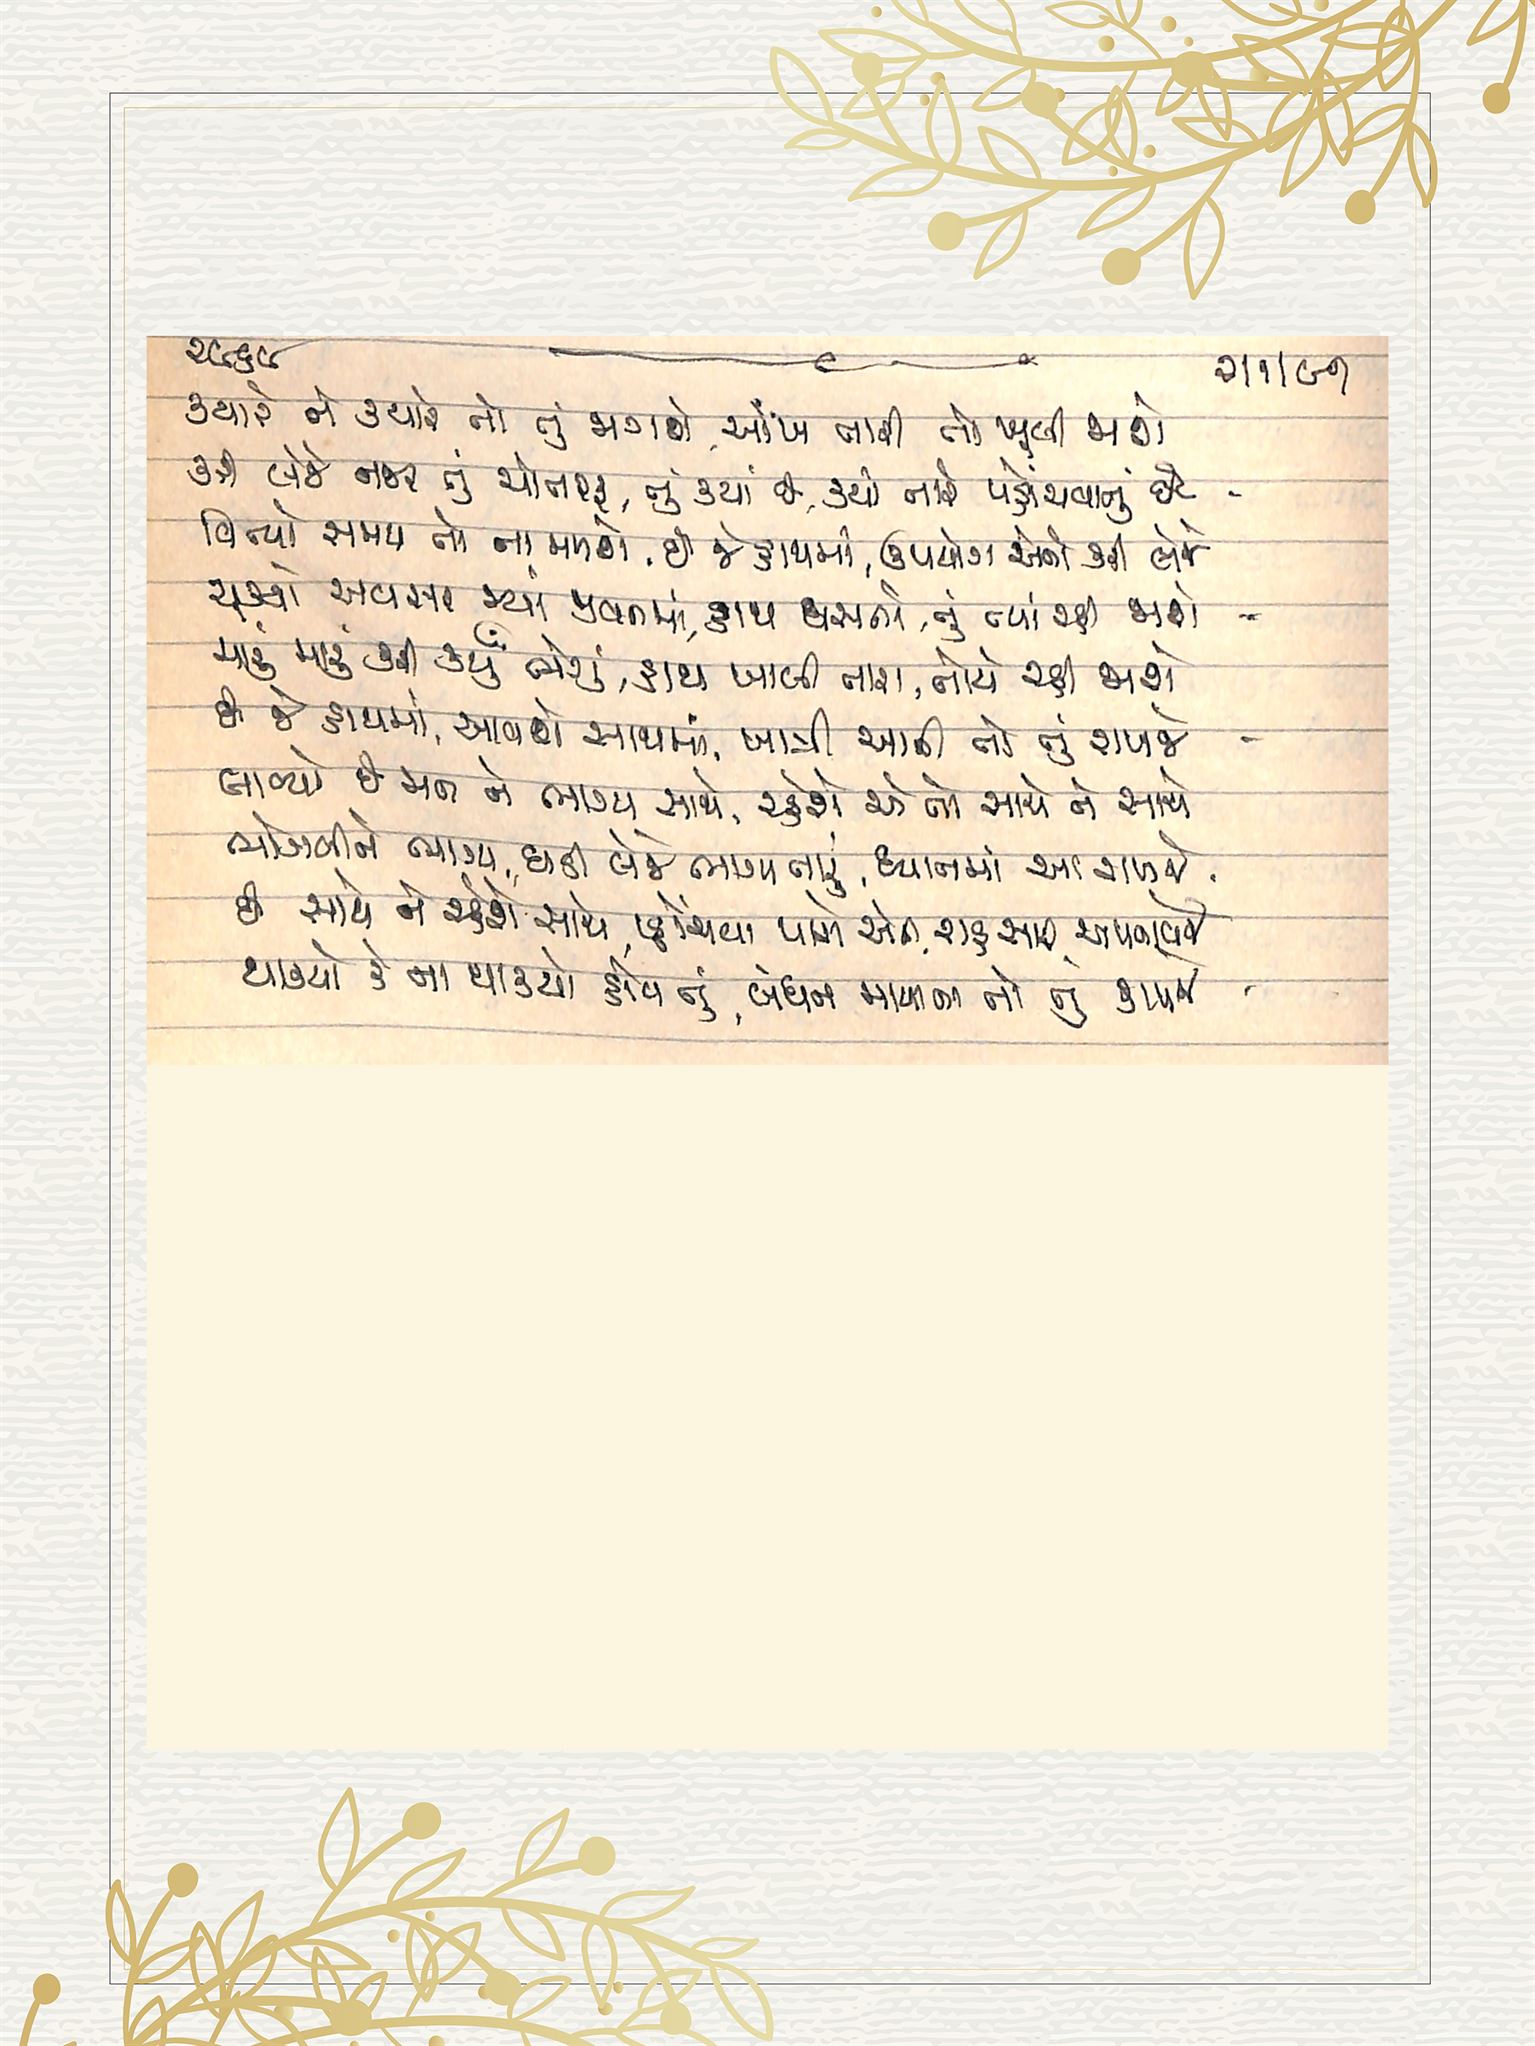 ૨૯૬૯ ૨/૧/૯૧
ક્યારે ને ક્યારે તો તું જાગશે, આંખ તારી તો ખૂલી જાશે
કરી લેજે નજર તું ચોતરફ, તું ક્યાં છે, ક્યાં તારે પહોંચવાનું છે -
વિત્યો સમય તો ના મળશે, છે જે હાથમાં, ઉપયોગ એનો કરી લેજે
ચૂક્યો અવસર જ્યાં જીવનમાં, હાથ ઘસતો, તું ત્યાં રહી જાશે -
મારું મારું કરી કર્યું ભેગું, હાથ ખાલી તારા, તોયે રહી જાશે
છે જે હાથમાં, આવશે સાથમાં, ખાત્રી આની તો તું રાખજે -
લાવ્યો છે મન ને ભાગ્ય સાથે, રહેશે એ તો સાથે ને સાથે
ભોગવીને ભાગ્ય, ઘડી લેજે ભાગ્ય તારું, ધ્યાનમાં આ રાખજે.
છે સાથે ને રહેશે સાથે, પ્હોંચવા પાસે એની, રાહ સાચી અપનાવજે
થાક્યો કે ના થાક્યો હોય તું, બંધન માયાના તો તું કાપજે -